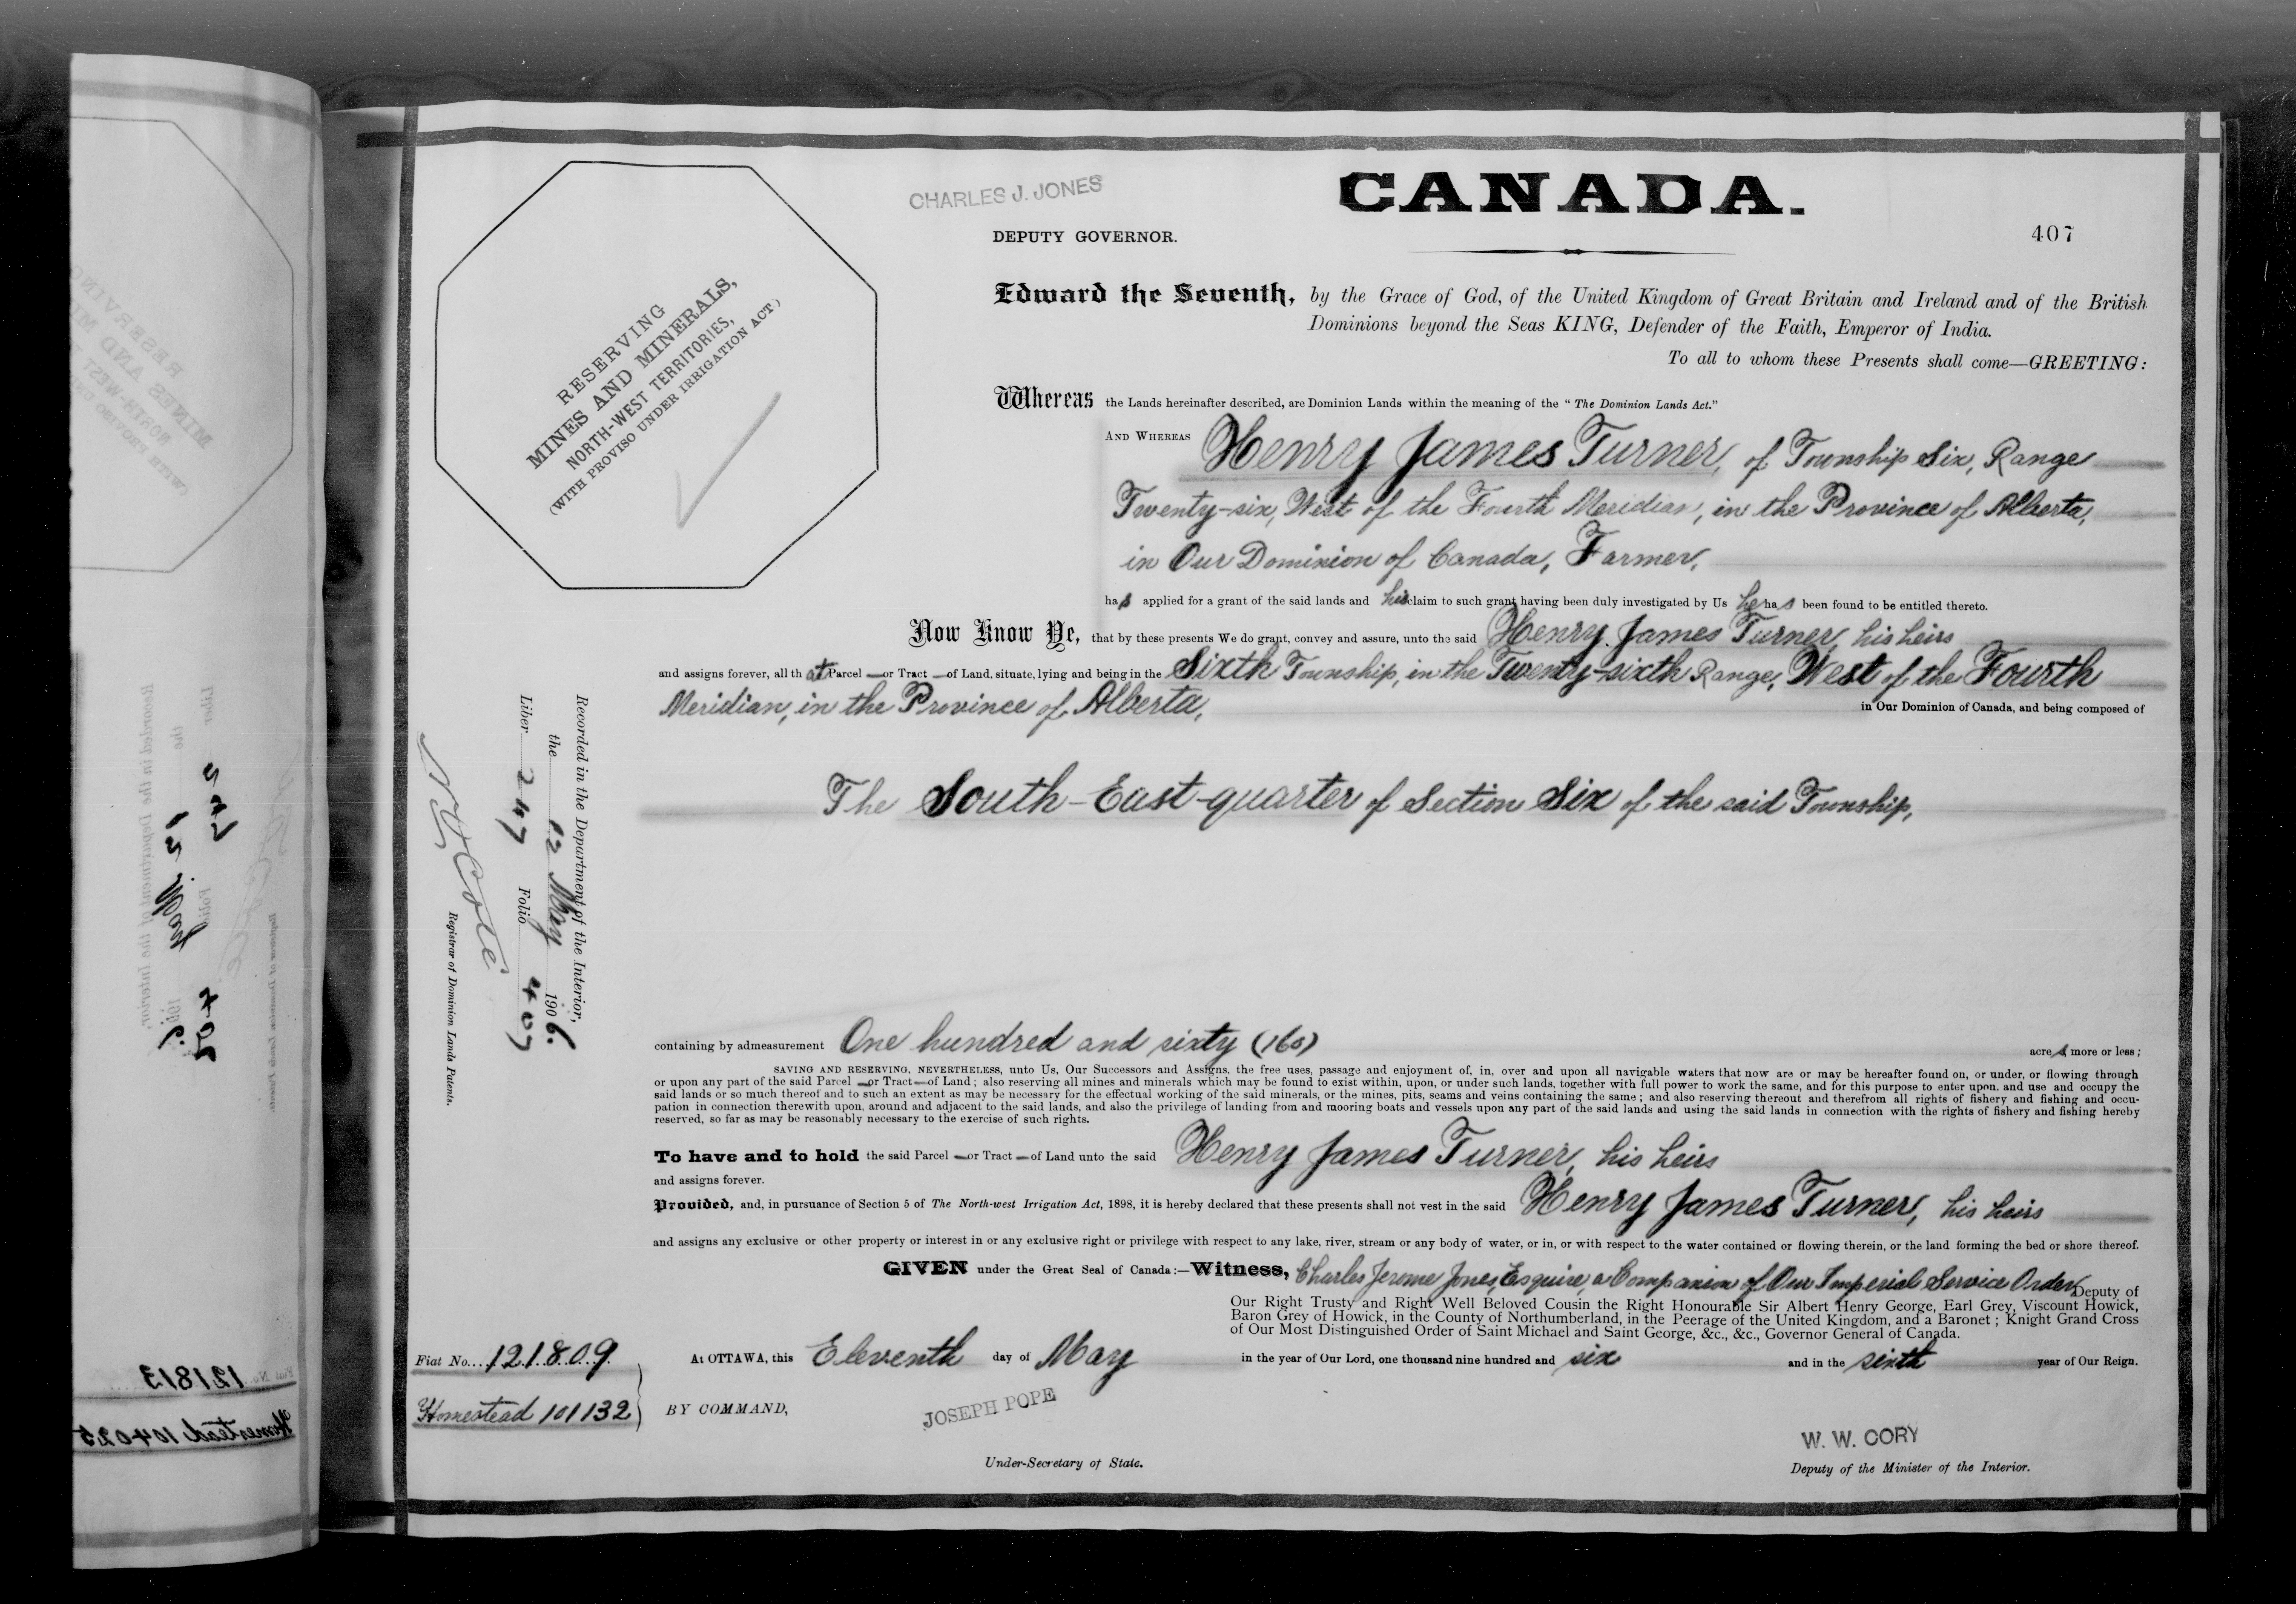 CHARLES J. JONES
CANADA.
DEPUTY GOVERNOR.
407
RESERVING
MINES AND MINERALS,
NORTH-WEST TERRITORIES,
(WITH PROVISO UNDER IRRIGATION ACT.)
Edward the Seventh, by the Grace of God, of the United Kingdom of Great Britain and Ireland and of the British
Dominions beyond the Seas KING, Defender of the Faith, Emperor of India.
To all to whom these Presents shall come—GREETING:
Whereas the Lands hereinafter described, are Dominion Lands within the meaning of the "The Dominion Lands Act."
AND WHEREAS Henry James Turner, of Township Six, Range
Twenty-six, West of the Fourth Meridian, in the Province of Alberta,
in Our Dominion of Canada, Farmer,
has applied for a grant of the said lands and his claim to such grant having been duly investigated by Us he has been found to be entitled thereto.
Now Know Ye, that by these presents We do grant, convey and assure, unto the said Henry James Turner, his heirs
and assigns forever, all that Parcel — or Tract — of Land, situate, lying and being in the Sixth Township, in the Twenty-sixth Range, West of the Fourth
Meridian, in the Province of Alberta, in Our Dominion of Canada, and being composed of
The South-East-quarter of Section Six of the said Township,
containing by admeasurement One hundred and sixty (160) acres more or less;
SAVING AND RESERVING, NEVERTHELESS, unto Us, Our Successors and Assigns, the free uses, passage and enjoyment of, in, over and upon all navigable waters that now are or may be hereafter found on, or under, or flowing through
or upon any part of the said Parcel — or Tract — of Land; also reserving all mines and minerals which may be found to exist within, upon, or under such lands, together with full power to work the same, and for this purpose to enter upon, and use and occupy the
said lands or so much thereof and to such an extent as may be necessary for the effectual working of the said minerals, or the mines, pits, seams and veins containing the same; and also reserving thereout and therefrom all rights of fishery and fishing and occu-
pation in connection therewith upon, around and adjacent to the said lands, and also the privilege of landing from and mooring boats and vessels upon any part of the said lands and using the said lands in connection with the rights of fishery and fishing hereby
reserved, so far as may be reasonably necessary to the exercise of such rights.
To have and to hold the said Parcel — or Tract — of Land unto the said Henry James Turner, his heirs
and assigns forever.
Provided, and, in pursuance of Section 5 of The North-west Irrigation Act, 1898, it is hereby declared that these presents shall not vest in the said Henry James Turner, his heirs
and assigns any exclusive or other property or interest in or any exclusive right or privilege with respect to any lake, river, stream or any body of water, or in, or with respect to the water contained or flowing therein, or the land forming the bed or shore thereof.
GIVEN under the Great Seal of Canada:—Witness, Charles Jerome Jones, Esquire, a Companion of Our Imperial Service Order, Deputy of
Our Right Trusty and Right Well Beloved Cousin the Right Honourable Sir Albert Henry George, Earl Grey, Viscount Howick,
Baron Grey of Howick, in the County of Northumberland, in the Peerage of the United Kingdom, and a Baronet; Knight Grand Cross
of Our Most Distinguished Order of Saint Michael and Saint George, &c., &c., Governor General of Canada.
At OTTAWA, this Eleventh day of May in the year of Our Lord, one thousand nine hundred and six and in the sixth year of Our Reign.
Fiat No... 121809
Homestead 101132
BY COMMAND,
JOSEPH POPE
Under-Secretary of State.
W. W. CORY
Deputy of the Minister of the Interior.
Recorded in the Department of the Interior,
the 12 May 1906.
Liber 247 Folio 407
N O Coté
Registrar of Dominion Lands Patents.
Fiat No. 121813
Homestead 104025